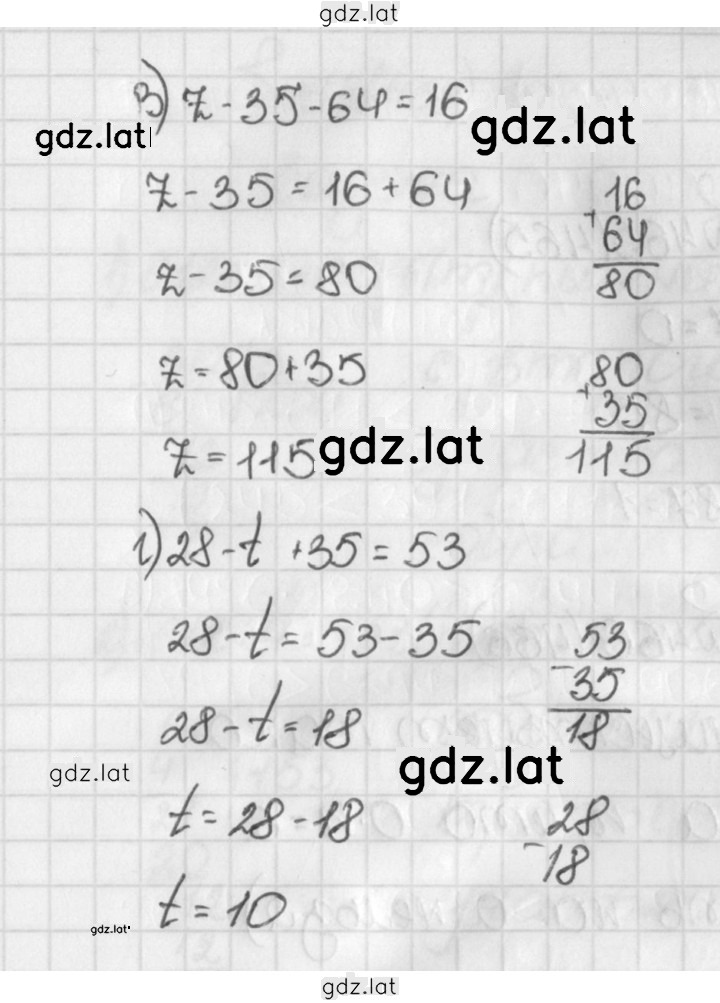 gdz.lat
в) z - 35 - 64 = 16
gdz.lat
gdz.lat
z - 35 = 16 + 64
16
+
64
80
z - 35 = 80
z = 80 + 35
80
+
35
115
z = 115
gdz.lat
г) 28 - t + 35 = 53
28 - t = 53 - 35
53
-
35
18
28 - t = 18
gdz.lat
gdz.lat
t = 28 - 18
28
-
18
t = 10
gdz.lat
gdz.lat